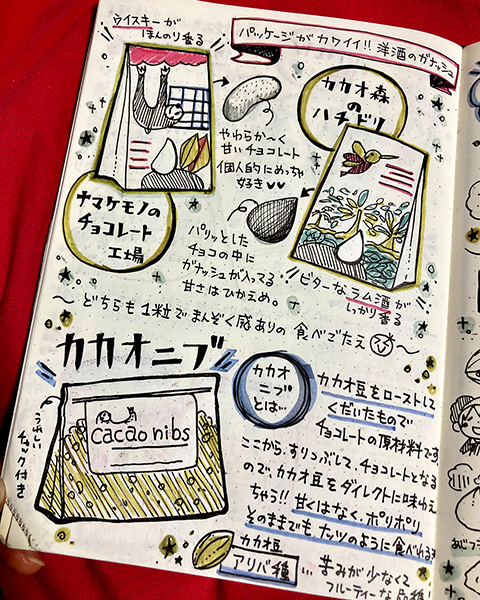 ウイスキーが
ほんのり香る
パッケージがカワイイ!! 洋酒のガナッシュ
カカオ森
の
ハチドリ
やわらか〜く
甘いチョコレート
個人的にめっちゃ
好き♥♥
ナマケモノの
チョコレート
工場
パリッとした
チョコの中に
ガナッシュが入ってる
甘さはひかえめ。
ビターなラム酒が
しっかり香る
〜どちらも1粒でまんぞく感ありの食べごたえ〜
カカオニブ
うれしい
チャック付き
cacao nibs
カカオ
ニブ
とは…
カカオ豆をローストして
くだいたもので
チョコレートの原材料です
ここから、すりつぶして、チョコレートとなる
ので、カカオ豆をダイレクトに味わえ
ちゃう!! 甘くはなく、ポリポリ
そのままでもナッツのように食べれる
カカオ豆
アリバ種
… 苦みが少なくて
フルーティーな品種